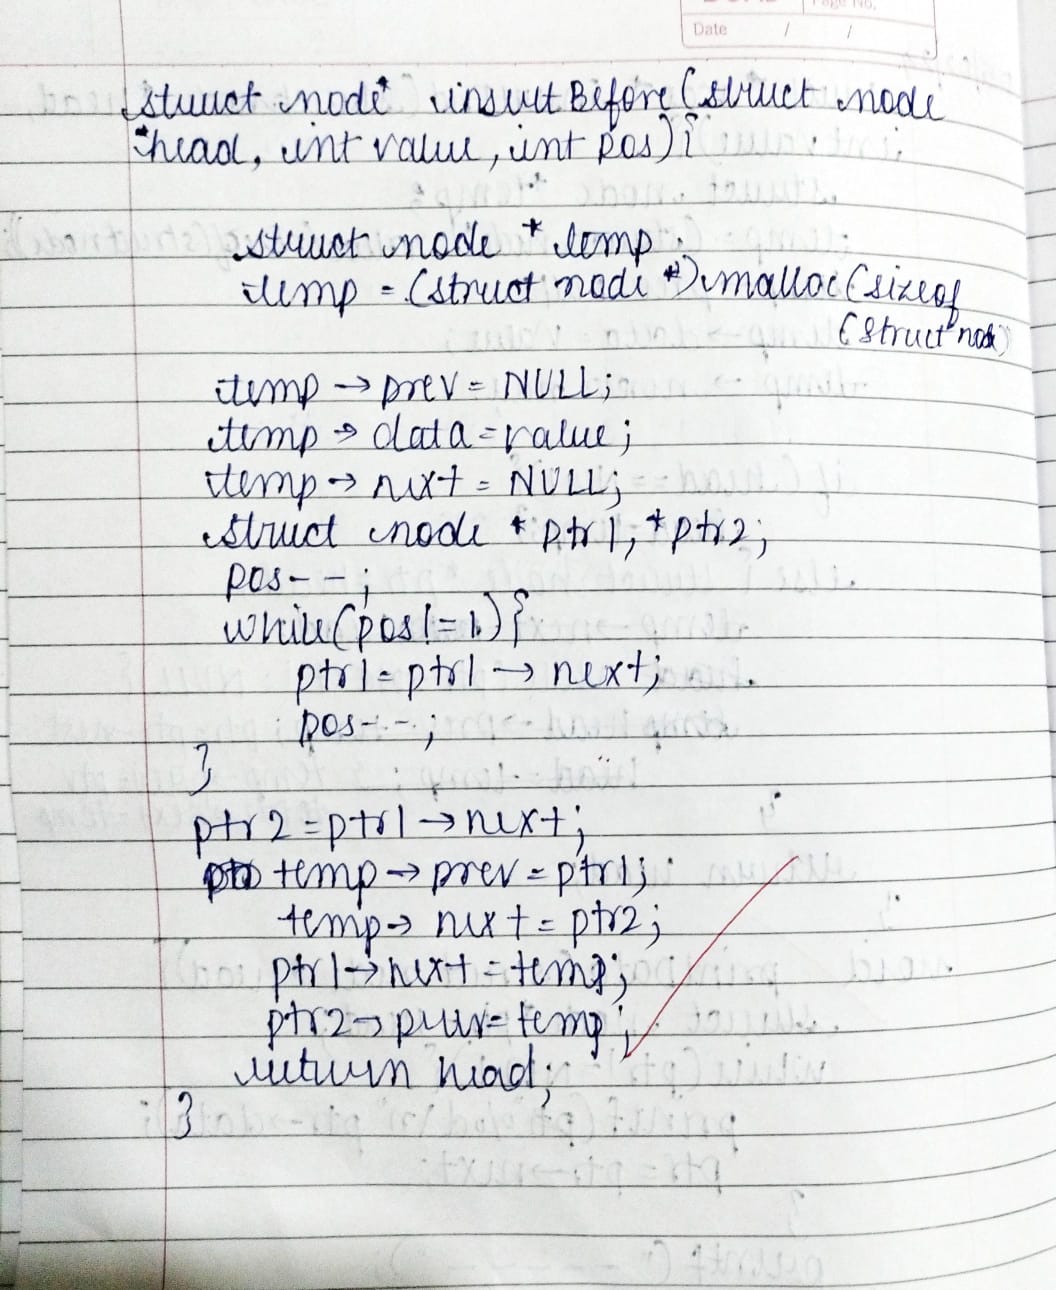 Page No.
Date / /
struct node* insertBefore (struct node
*head, int value, int pos){
struct node * temp;
temp = (struct node *) malloc (sizeof
(struct node)
temp → prev = NULL;
temp → data = value;
temp → next = NULL;
struct node * ptr1, *ptr2;
pos--;
while(pos!=1){
ptr1 = ptr1 → next;
pos--;
}
ptr2 = ptr1 → next;
temp → prev = ptr1;
temp → next = ptr2;
ptr1 → next = temp;
ptr2 → prev = temp;
return head;
}